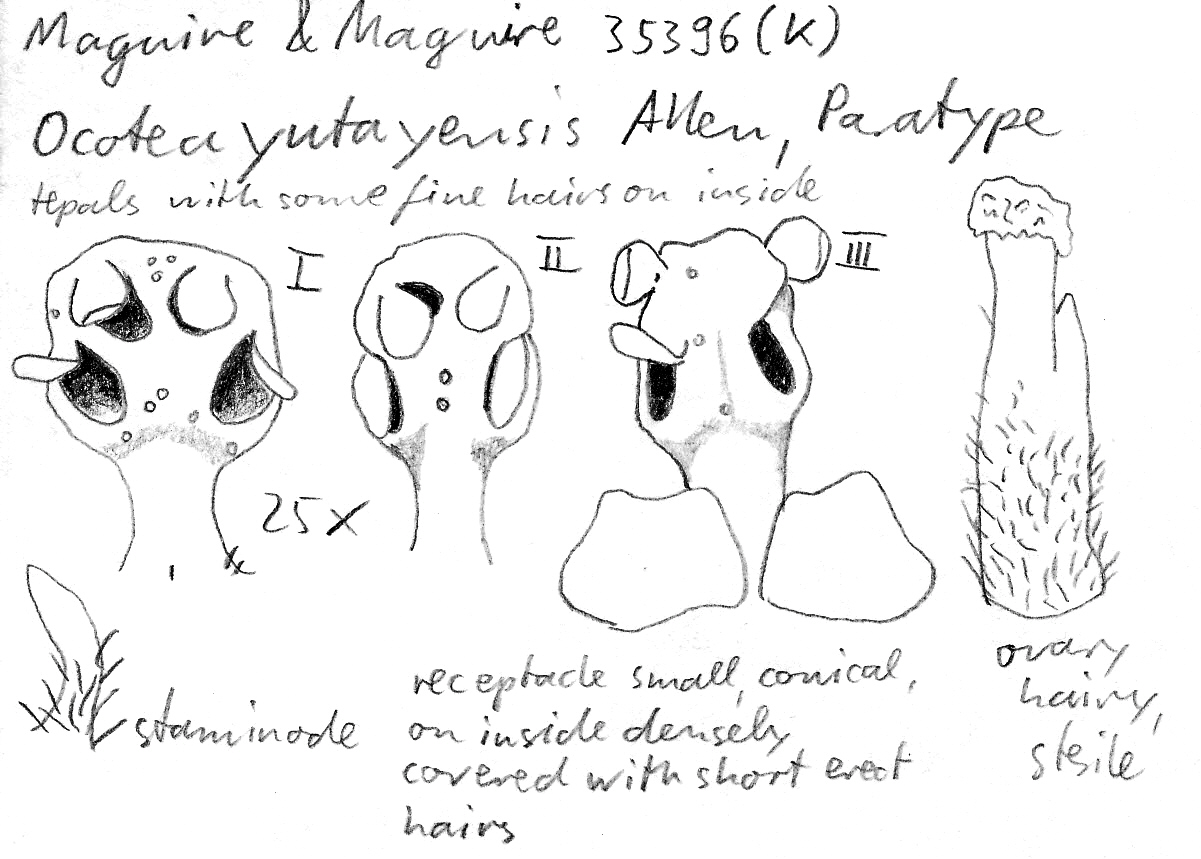 Maguire & Maguire 35396 (K)
Ocotea yutayensis Allen, Paratype
tepals with some fine hairs on inside
I
II
III
25x
staminode
receptacle small, conical,
on inside densely
covered with short erect
hairs
ovary
hairy,
sterile